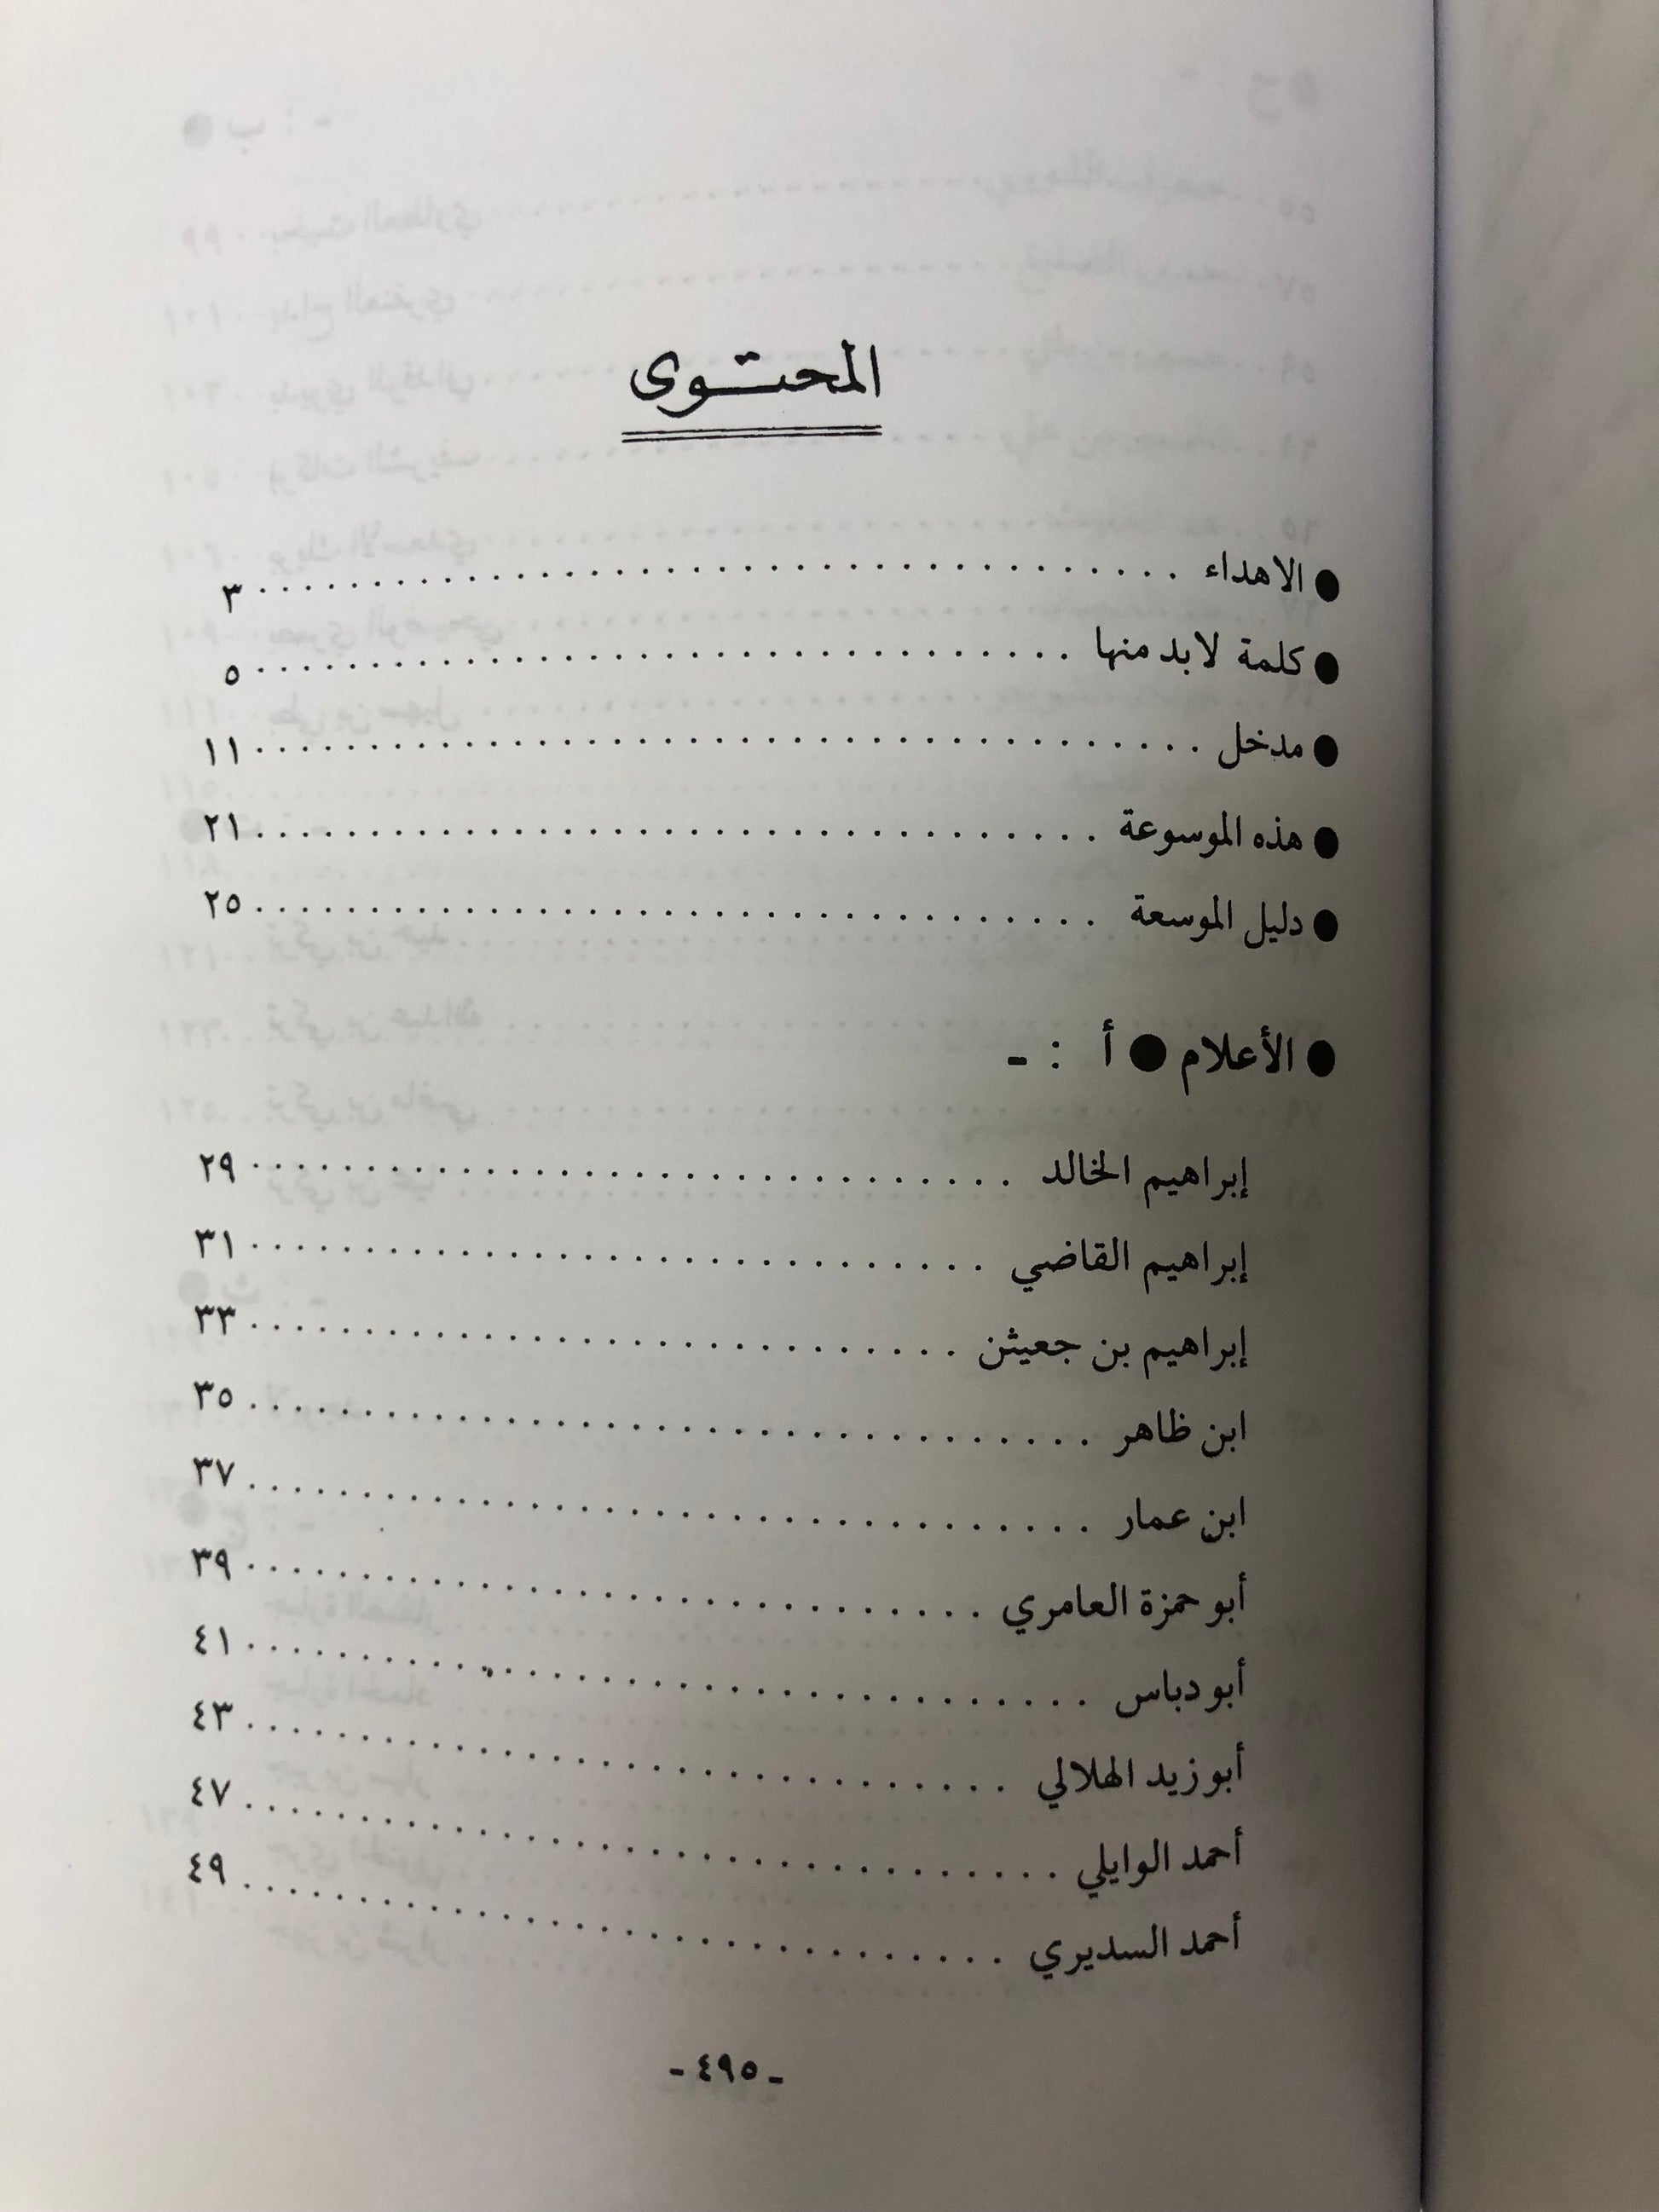 المحتوى
● الاهداء ........................................ ٣
● كلمة لابد منها ........................................ ٥
● مدخل ........................................ ١١
● هذه الموسوعة ........................................ ٢١
● دليل الموسعة ........................................ ٢٥
● الأعلام ● أ : -
إبراهيم الخالد ........................................ ٢٩
إبراهيم القاضي ........................................ ٣١
إبراهيم بن جعيثن ........................................ ٣٣
ابن ظاهر ........................................ ٣٥
ابن عمار ........................................ ٣٧
أبو حمزة العامري ........................................ ٣٩
أبو دباس ........................................ ٤١
أبو زيد الهلالي ........................................ ٤٣
أحمد الوايلي ........................................ ٤٧
أحمد السديري ........................................ ٤٩
- ٤٩٥ -